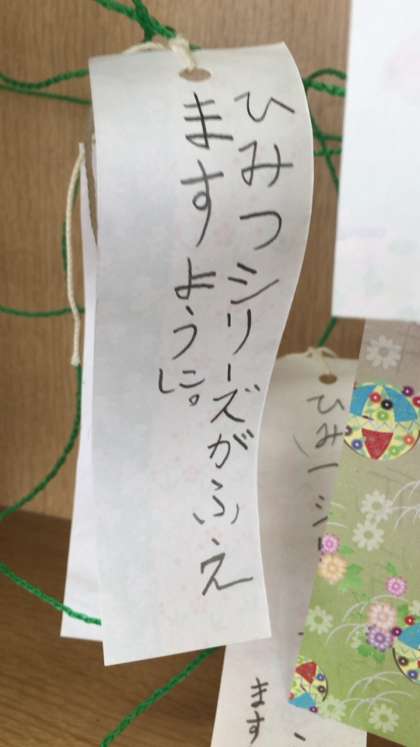 ひみつシリーズがふえ
ますように。
ます